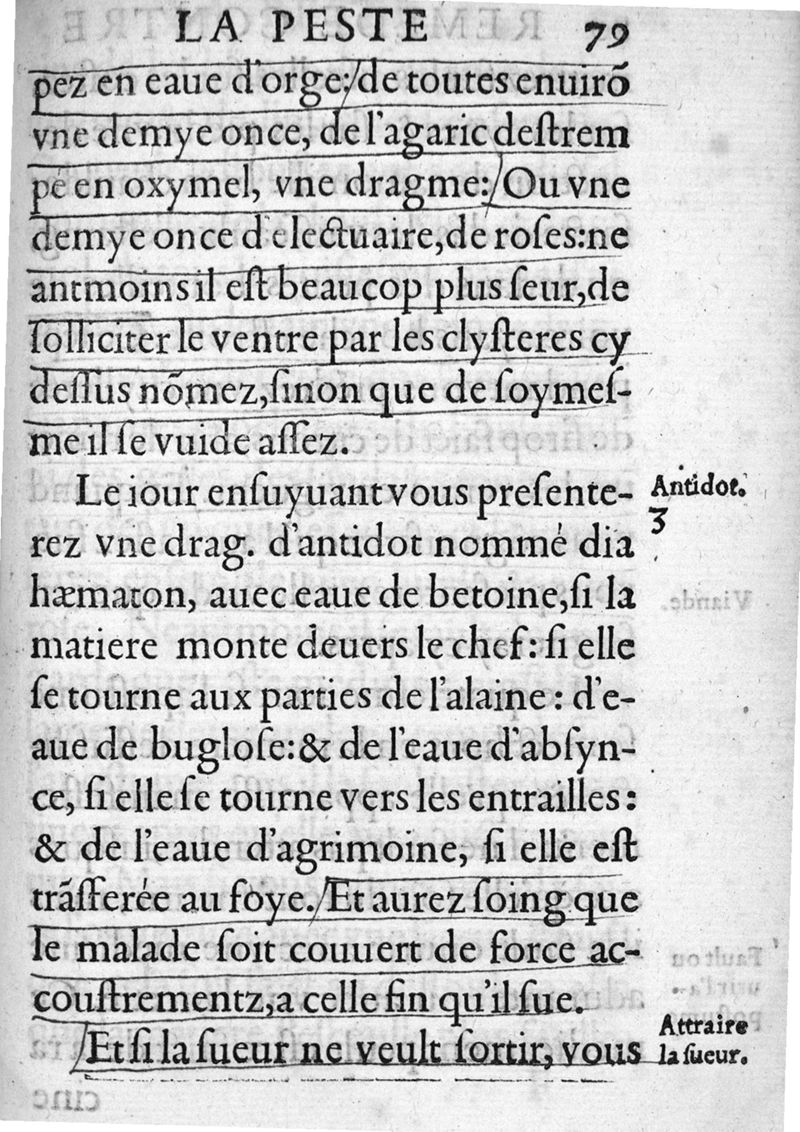 LA PESTE 79
pez en eaue d'orge: de toutes enuirõ
vne demye once, de l'agaric deſtrem
pé en oxymel, vne dragme: Ou vne
demye once d'electuaire, de roſes: ne
antmoins il eſt beaucop plus ſeur, de
ſolliciter le ventre par les clyſteres cy
deſſus nõmez, ſinon que de ſoymeſ-
me il ſe vuide aſſez.
Le iour enſuyuant vous preſente- Antidot.
rez vne drag. d'antidot nommé dia 3
hæmaton, auec eaue de betoine, ſi la
matiere monte deuers le chef: ſi elle
ſe tourne aux parties de l'alaine: d'e-
aue de bugloſe: & de l'eaue d'abſyn-
ce, ſi elle ſe tourne vers les entrailles:
& de l'eaue d'agrimoine, ſi elle eſt
trãſferée au foye. Et aurez ſoing que
le malade ſoit couuert de force ac-
couſtrementz, a celle fin qu'il ſue.
Et ſi la ſueur ne veult ſortir, vous
Attraire
la ſueur.